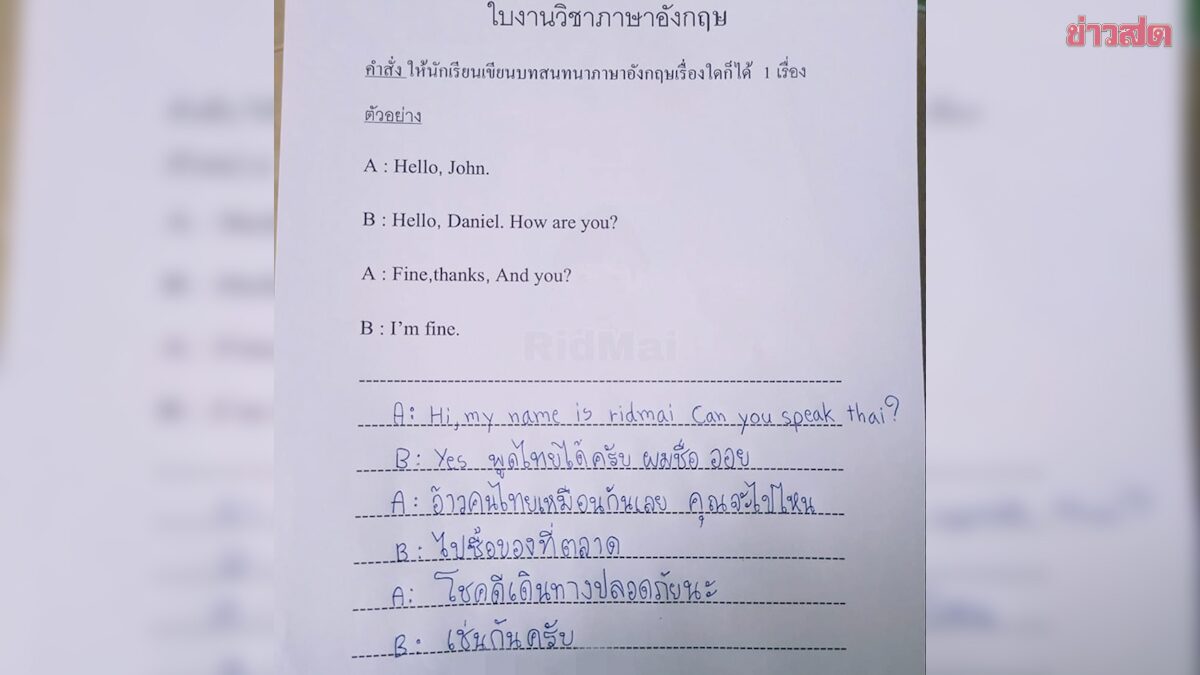 ใบงานวิชาภาษาอังกฤษ
ข่าวสด
คำสั่ง ให้นักเรียนเขียนบทสนทนาภาษาอังกฤษเรื่องใดก็ได้ 1 เรื่อง
ตัวอย่าง
A : Hello, John.
B : Hello, Daniel. How are you?
A : Fine,thanks, And you?
B : I'm fine.
RidMai
A: Hi, my name is ridmai Can you speak thai?
B: Yes พูดไทยได้ครับ ผมชื่อ ออย
A: อ้าวคนไทยเหมือนกันเลย คุณจะไปไหน
B: ไปซื้อของที่ตลาด
A: โชคดีเดินทางปลอดภัยนะ
B: เช่นกันครับ